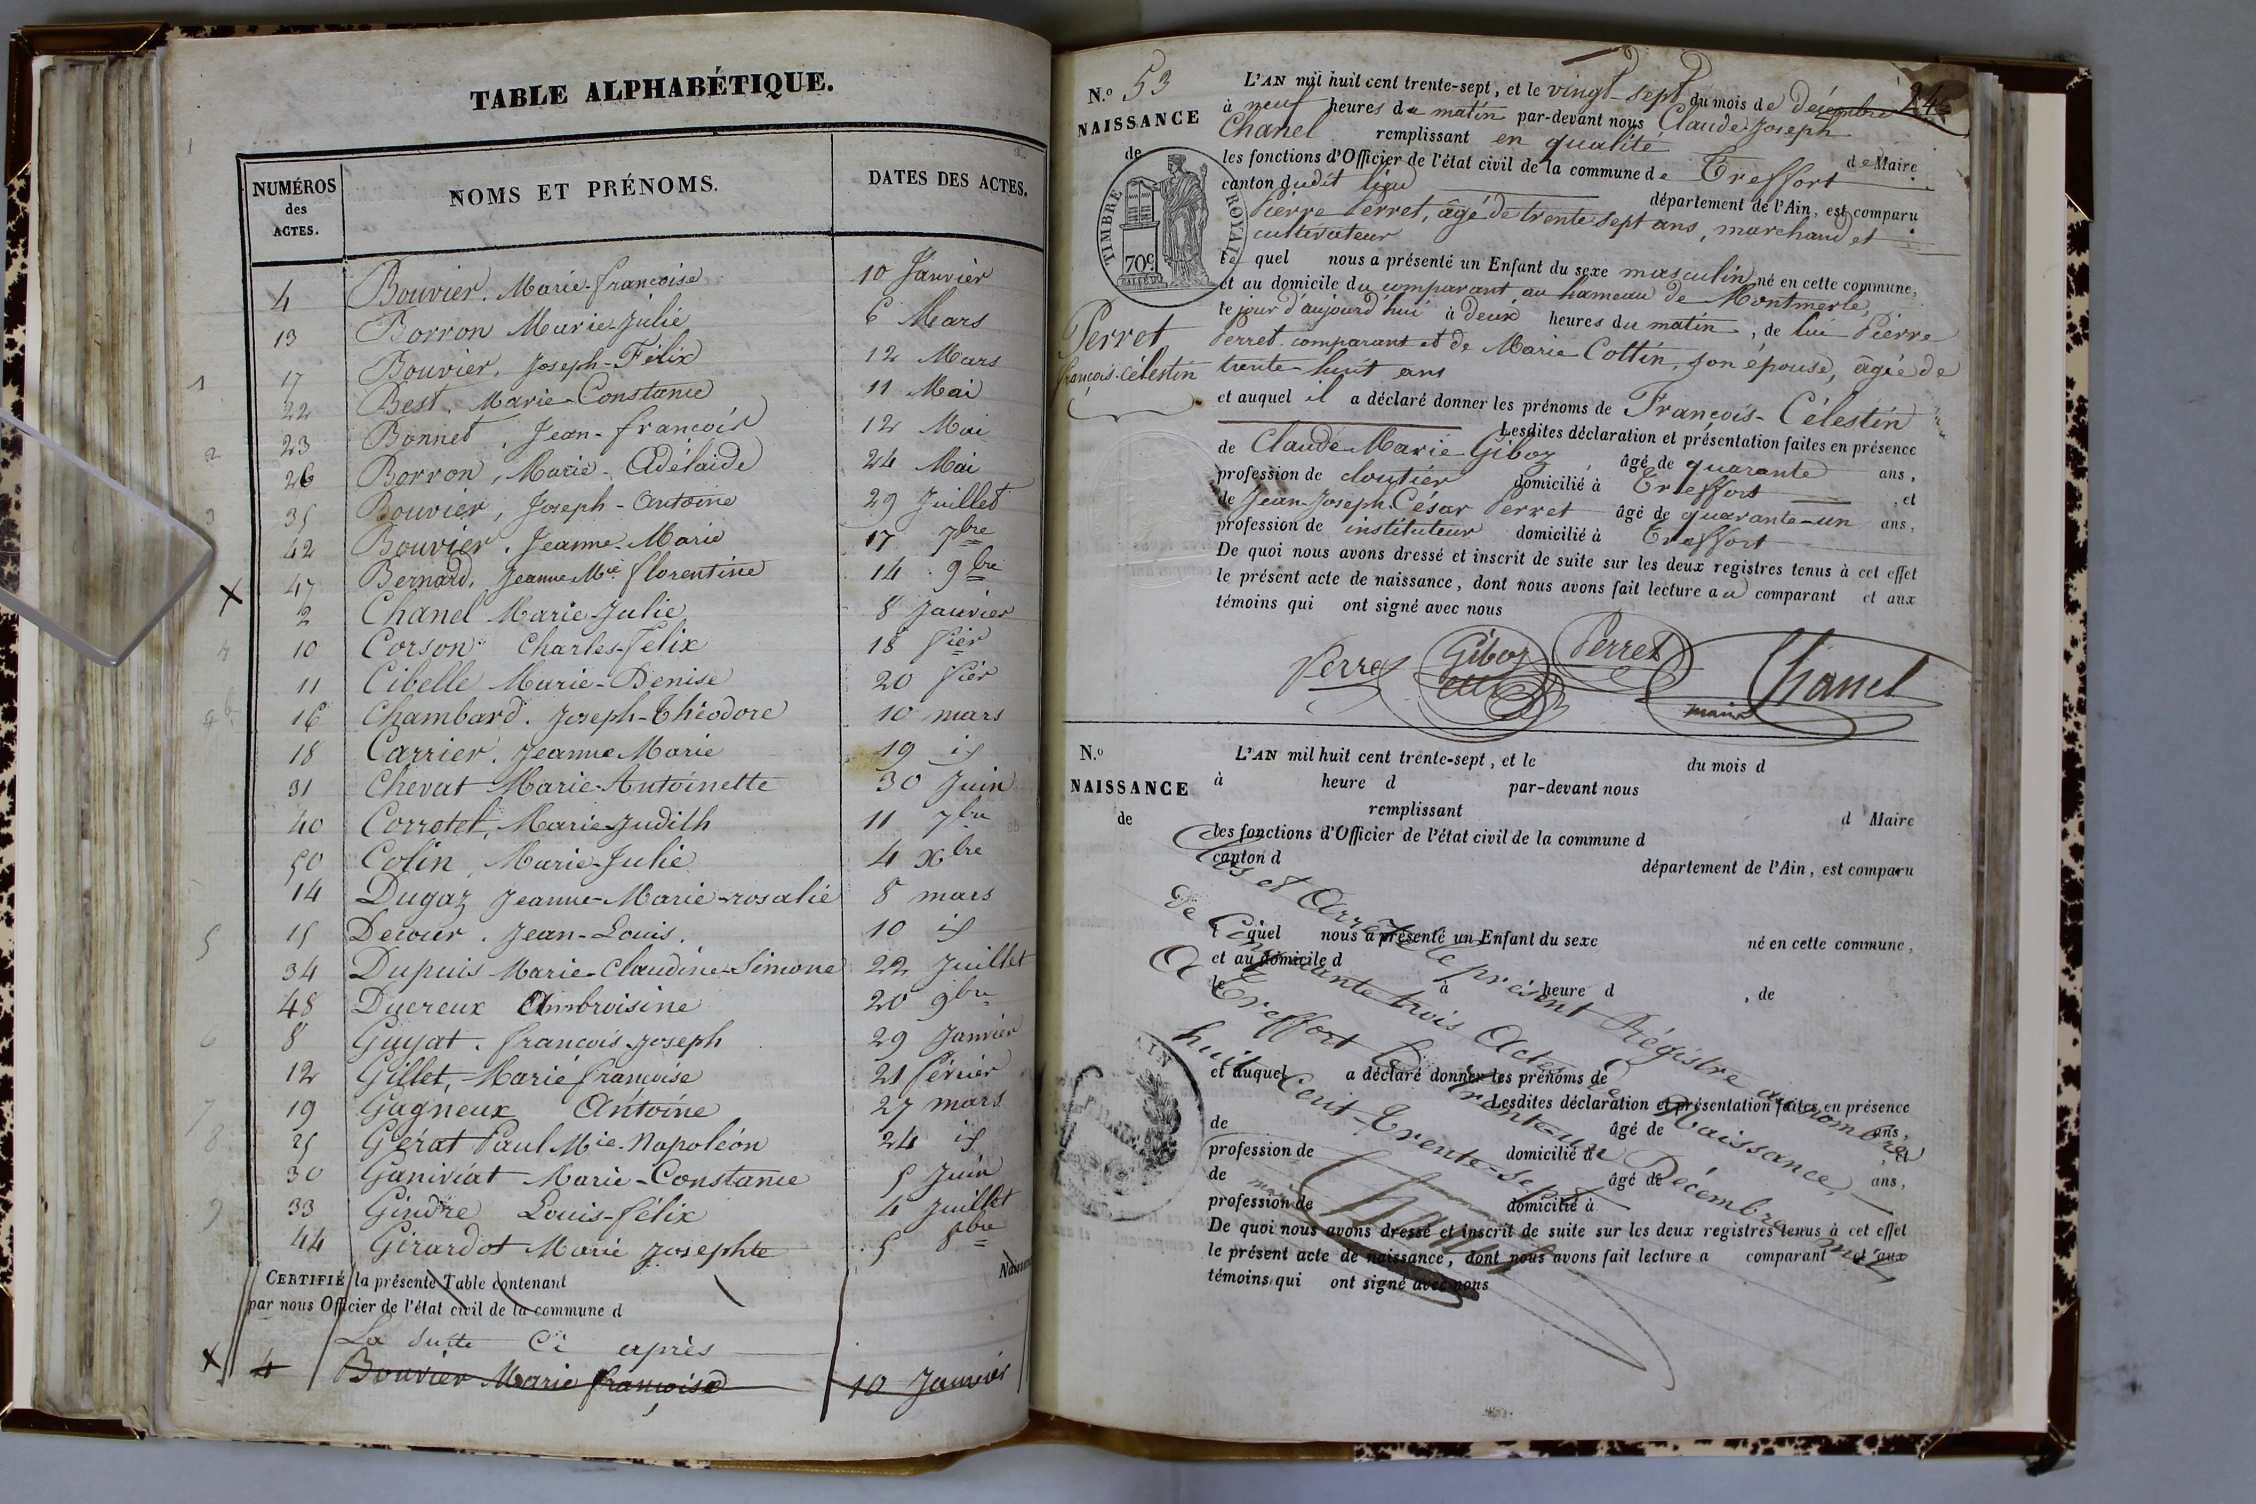 TABLE ALPHABÉTIQUE.
NUMÉROS des ACTES. NOMS ET PRÉNOMS. DATES DES ACTES.
4 Bouvier. Marie-françoise 10 Janvier
13 Borron Marie-Julie 6 Mars
1 17 Bouvier. Joseph-Félix 12 Mars
22 Best. Marie-Constance 11 Mai
2 23 Bonnet, Jean-françois 12 Mai
26 Borron, Marie-Adélaïde 24 Mai
3 35 Bouvier, Joseph-Antoine 29 Juillet
42 Bouvier. Jeanne-Marie 17 7bre
X 47 Bernard. Jeanne Mie florentine 14 9bre
2 Chanel Marie-Julie 8 Janvier
4 10 Corson Charles-Félix 18 fier
11 Cibelle Marie-Denise 20 fier
16 Chambard. Joseph-Théodore 10 mars
18 Carrier. Jeanne Marie 19 id
31 Chevat Marie-Antoinette 30 Juin
40 Corrotet, Marie-Judith 11 7bre
50 Colin, Marie-Julie 4 Xbre
14 Dugaz Jeanne-Marie-rosalie 8 mars
5 15 Decour. Jean-Louis. 10 id
34 Dupuis Marie-Claudine-Simone 22 Juillet
48 Ducreux Ambroisine 20 9bre
6 8 Guyat. françois-Joseph 29 Janvier
12 Gillet, Marie françoise 21 février
7 19 Gagneux Antoine 27 mars
8 25 Gérat Paul Mie-Napoléon 24 id
30 Ganivéat Marie-Constance 5 Juin
9 33 Gindre Louis-félix 4 Juillet
44 Girardot Marie Josephte 5 8bre
CERTIFIÉ la présente Table contenant
par nous Officier de l'état civil de la commune d
La suite Ci après
X 4 Bouvier Marie françoise 10 Janvier
N.o 53
NAISSANCE
de
TIMBRE ROYAL
70c
Perret
françois-Célestin
L'AN mil huit cent trente-sept, et le vingt-sept du mois de décembre
à neuf heures du matin par-devant nous Claude-Joseph
Chanel remplissant en qualité de Maire
les fonctions d'Officier de l'état civil de la commune de Treffort
canton dudit lieu département de l'Ain, est comparu
Pierre Perret, âgé de trente-sept ans, marchand et
cultivateur
lequel nous a présenté un Enfant du sexe masculin né en cette commune,
et au domicile du comparant au hameau de Montmerle,
le jour d'aujourd'hui à deux heures du matin, de lui Pierre
Perret comparant et de Marie Cottin, son épouse, âgée de
trente-huit ans
et auquel il a déclaré donner les prénoms de François-Célestin
Lesdites déclaration et présentation faites en présence
de Claude Marie Giboz âgé de quarante ans,
profession de cloutier domicilié à Treffort, et
de Jean-Joseph-César Perret âgé de quarante-un ans,
profession de instituteur domicilié à Treffort
De quoi nous avons dressé et inscrit de suite sur les deux registres tenus à cet effet
le présent acte de naissance, dont nous avons fait lecture au comparant et aux
témoins qui ont signé avec nous
Perret Giboz Perret Chanel
maire
N.o
NAISSANCE
de
L'AN mil huit cent trente-sept, et le du mois d
à heure d par-devant nous
remplissant d Maire
les fonctions d'Officier de l'état civil de la commune d
canton d département de l'Ain, est comparu
lequel nous a présenté un Enfant du sexe né en cette commune,
et au domicile d
le à heure d , de
et auquel a déclaré donner les prénoms de
Lesdites déclaration et présentation faites en présence
de âgé de ans,
profession de domicilié à , et
de âgé de ans,
profession de domicilié à
De quoi nous avons dressé et inscrit de suite sur les deux registres tenus à cet effet
le présent acte de naissance, dont nous avons fait lecture a comparant et aux
témoins qui ont signé avec nous
Clos et Arrêté le présent Régistre au nombre
de Cinquante trois Actes de Naissance,
A Treffort le trente-un Décembre mil
huit Cent-trente-sept